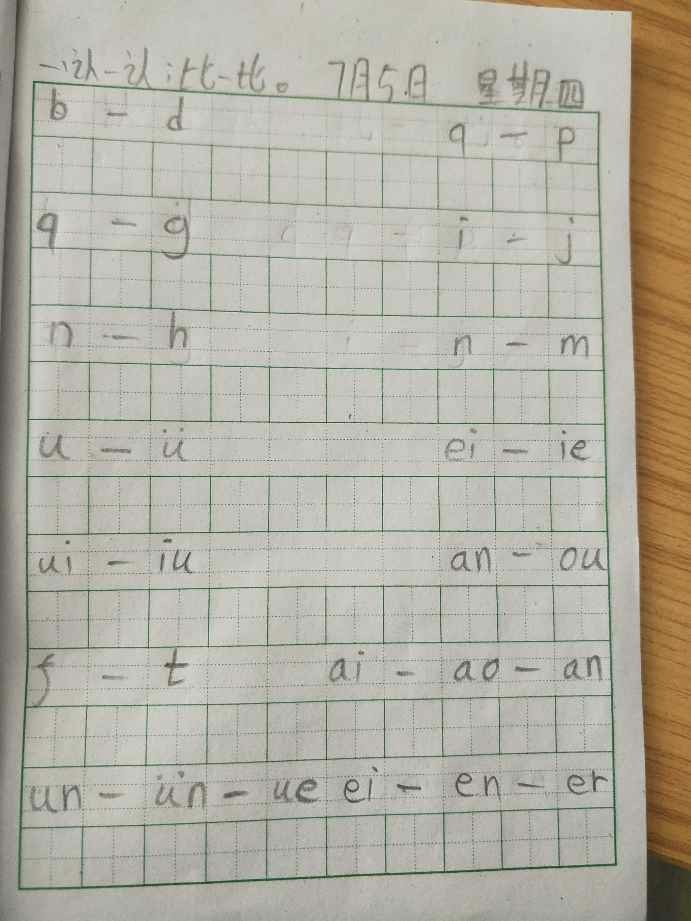 一认一认,比一比。 7月5日 星期四
b - d q - p
q - g i - j
n - h n - m
u - ü ei - ie
ui - iu an - ou
f - t ai - ao - an
un - ün - ue ei - en - er